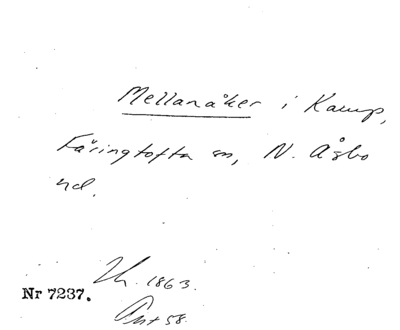 Mellanåker i Kamp,
Färingtofta sn, N. Åsbo
hd.
1863.
Nr 7237.
58.